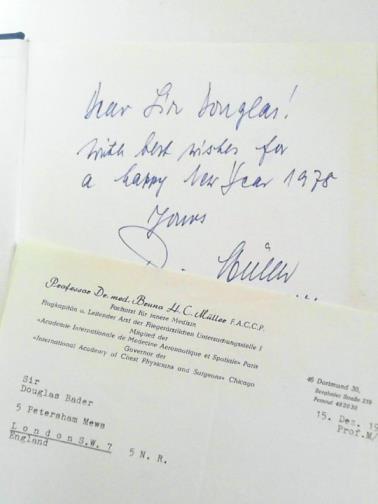 Dear Sir Douglas!
with best wishes for
a happy New Year 1978
Yours
Müller
Professor Dr. med. Bruno H. C. Müller F.A.C.C.P.
Facharzt für innere Medizin
Flugkapitän u. Leitender Arzt der Fliegerärztlichen Untersuchungsstelle I
Mitglied der
«Academie Internationale de Medecine Aeronautique et Spatiale» Paris
Governor der
«International Academy of Chest Physicians and Surgeons» Chicago
46 Dortmund 30,
Berghofer Straße
Fernruf
15. Dez. 19
Prof.M/
Sir
Douglas Bader
5 Petersham Mews
London S.W. 7 5 N.R.
England